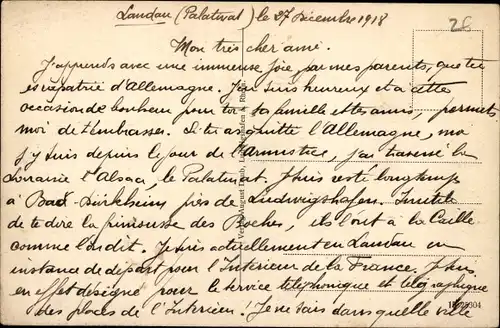 Landau (Palatinat) le 27 Décembre 1918
28
Mon très cher ami.
J'apprends avec une immense joie, par mes parents, que tu
es rapatrié d'Allemagne. J'en suis heureux et à cette
occasion de bonheur pour toi sa famille et tes amis, permets
moi de t'embrasser. Si tu as quitté l'Allemagne, moi
j'y suis depuis le jour de l'Armistice, j'ai traversé la
Lorraine l'Alsace, le Palatinat. J'suis resté longtemps
à Bad-Dürkheim près de Ludwigshafen. Inutile
de te dire la frimousse des Boches, ils l'ont à la Caille
comme l'on dit. Je suis actuellement en Landau en
instance de départ pour l'Intérieur de la France. J'suis
en effet désigné pour le service téléphonique et télégraphique
des places de l'Intérieur! Je ne sais dans quelle ville
Verlag August Ludwigshafen a. Rhein.